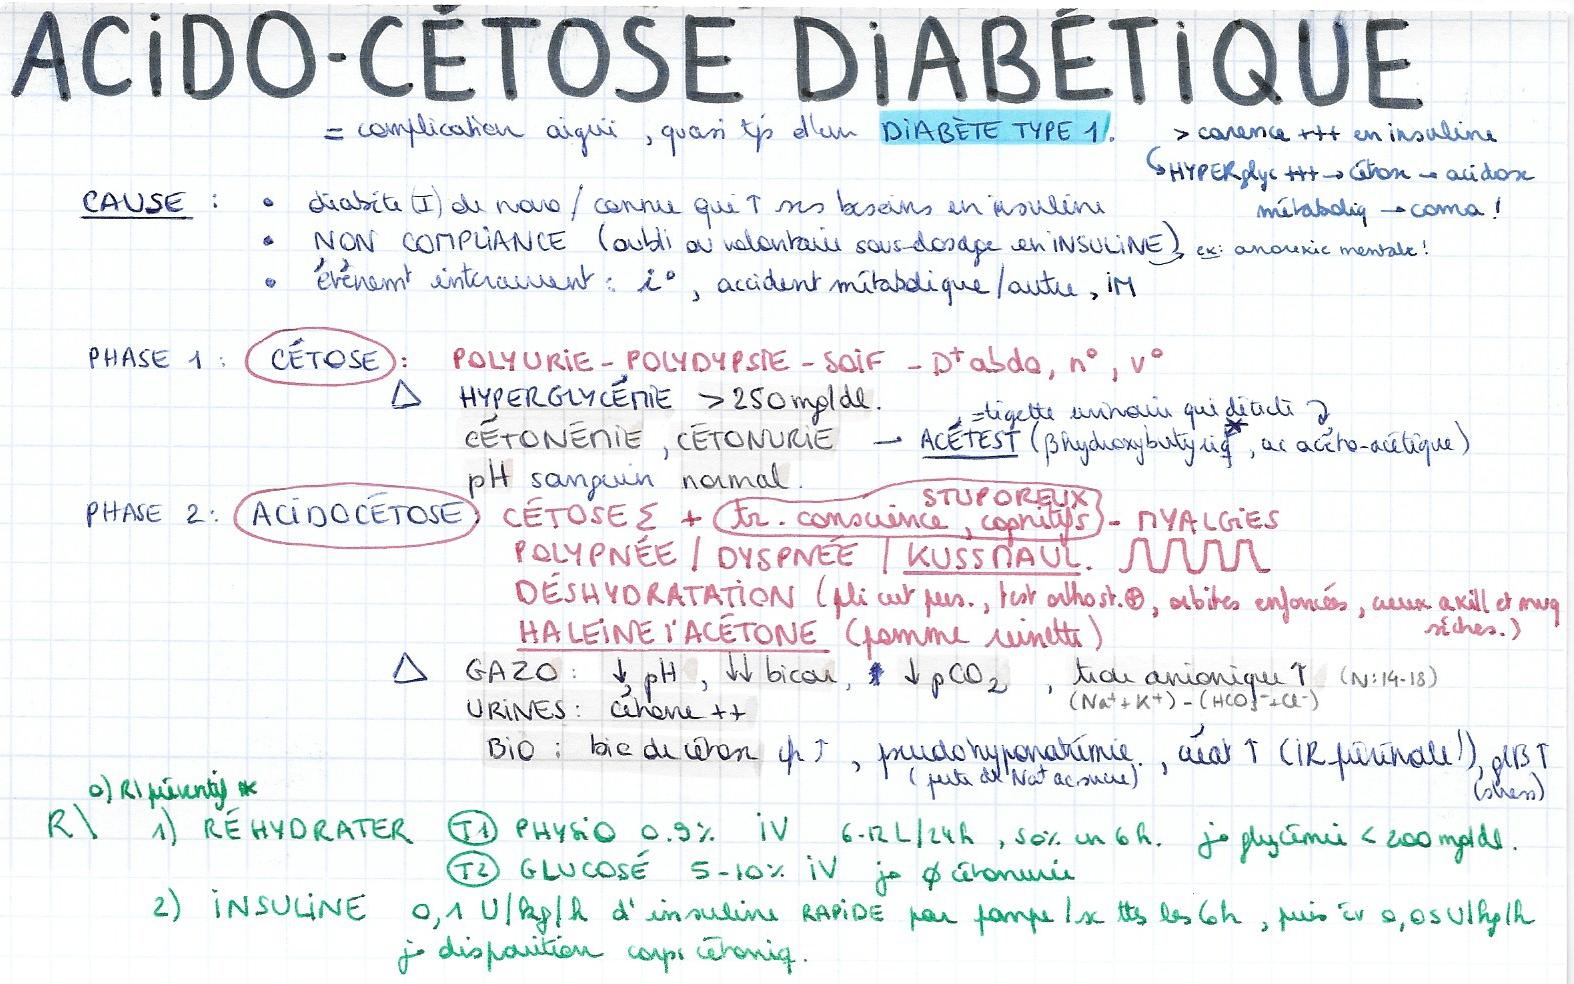 ACiDO-CÉTOSE DiABÉTiQUE
= complication aiguë, quasi tjs d'un DiABÈTE TYPE 1.
> carence +++ en insuline
↳ HYPERglyc +++ → cétose → acidose
métaboliq → coma !
CAUSE : • diabète (I) de novo / connu qui ↑ ses besoins en insuline
• NON COMPLIANCE (oubli ou volontaire sous-dosage en INSULINE) ex: anorexie mentale !
• évènemt intercurrent : i°, accident métabolique / autre, iM
PHASE 1 : CÉTOSE : POLYURiE - POLYDYPSiE - SOiF - D+ abdo, n°, v°
△ HYPERGLYCÉMiE > 250 mg/dl.
= tigette urinaire qui détecte
CÉTONÉMiE, CÉTONURiE → ACÉTEST (βhydroxybutyriq, ac acéto-acétique)
pH sanguin normal.
PHASE 2 : ACiDOCÉTOSE CÉTOSE Σ + tr. conscience, cognitifs - MYALGiES
STUPOREUX
POLYPNÉE / DYSPNÉE / KUSSMAUL.
DÉSHYDRATATiON (pli cut pers., test orthost. ⊕, orbites enfoncées, creux axill et muq
sèches.)
HALEiNE l'ACÉTONE (pomme reinette)
△ GAZO : ↓ pH, ↓↓ bicar, ↓ pCO2, trou anionique ↑ (N: 14-18)
(Na+ + K+) - (HCO3- + Cl-)
URiNES : cétone ++
BiO : bio de cétose ↑, pseudohyponatrémie, créat ↑ (iR prérénale !), glB ↑
(perte de Na+ ac sucre) (stress)
0) R\ préventif
R\ 1) RÉHYDRATER T1 PHYSiO 0.9% iV 6-12 L/24h, 50% en 6h. jo glycémie < 200 mg/dl.
T2 GLUCOSÉ 5-10% iV jo ∅ cétonurie
2) iNSULiNE 0,1 U/kg/h d'insuline RAPiDE par pompe /sc ttes les 6h, puis iv 0,05 U/kg/h
jo disparition corps cétoniq.